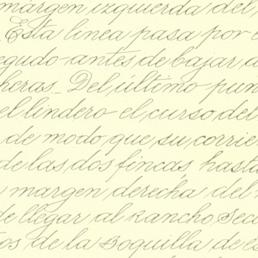 margen izquierda del
Esta linea pasa por
agudo antes de bajar
heras. Del último pun
el lindero el curso del
de modo que su corrie
de las dos fincas, hasta
margen derecha del
de llegar al Rancho, sec
tos de la Boquilla de es